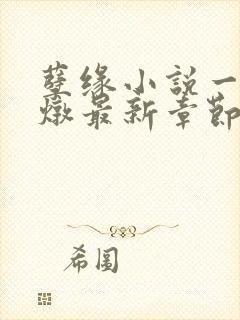 孽缘小說一
燉最新章節
希圖